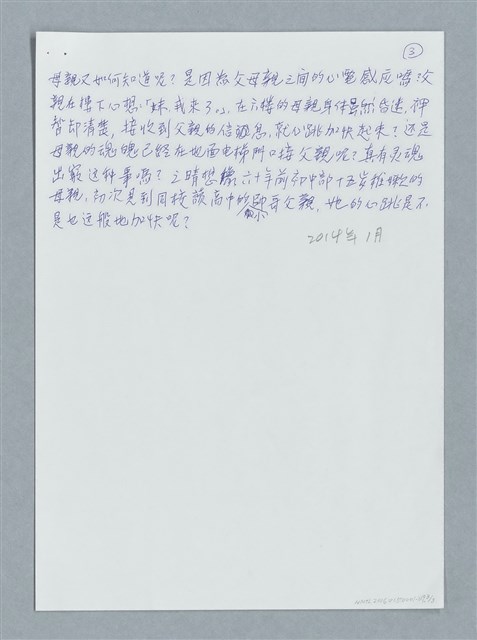 ③
母親又如何知道呢？是因為父母親之间的心電感应嗎？父
親在樓下心想:「妹,我來了。」在六樓的母親身体虽然昏迷,神
智却清楚,接收到父親的信息,就心跳加快起来？还是
母親的魂魄已經在地面电梯門口接父親呢？真有灵魂
出竅这种事嗎？三晴想 六十年前初中部十五岁推嫩的
母親,初次見到同校讀高中的 父親,她的心跳是不
是也这般地加快呢？
2014年1月